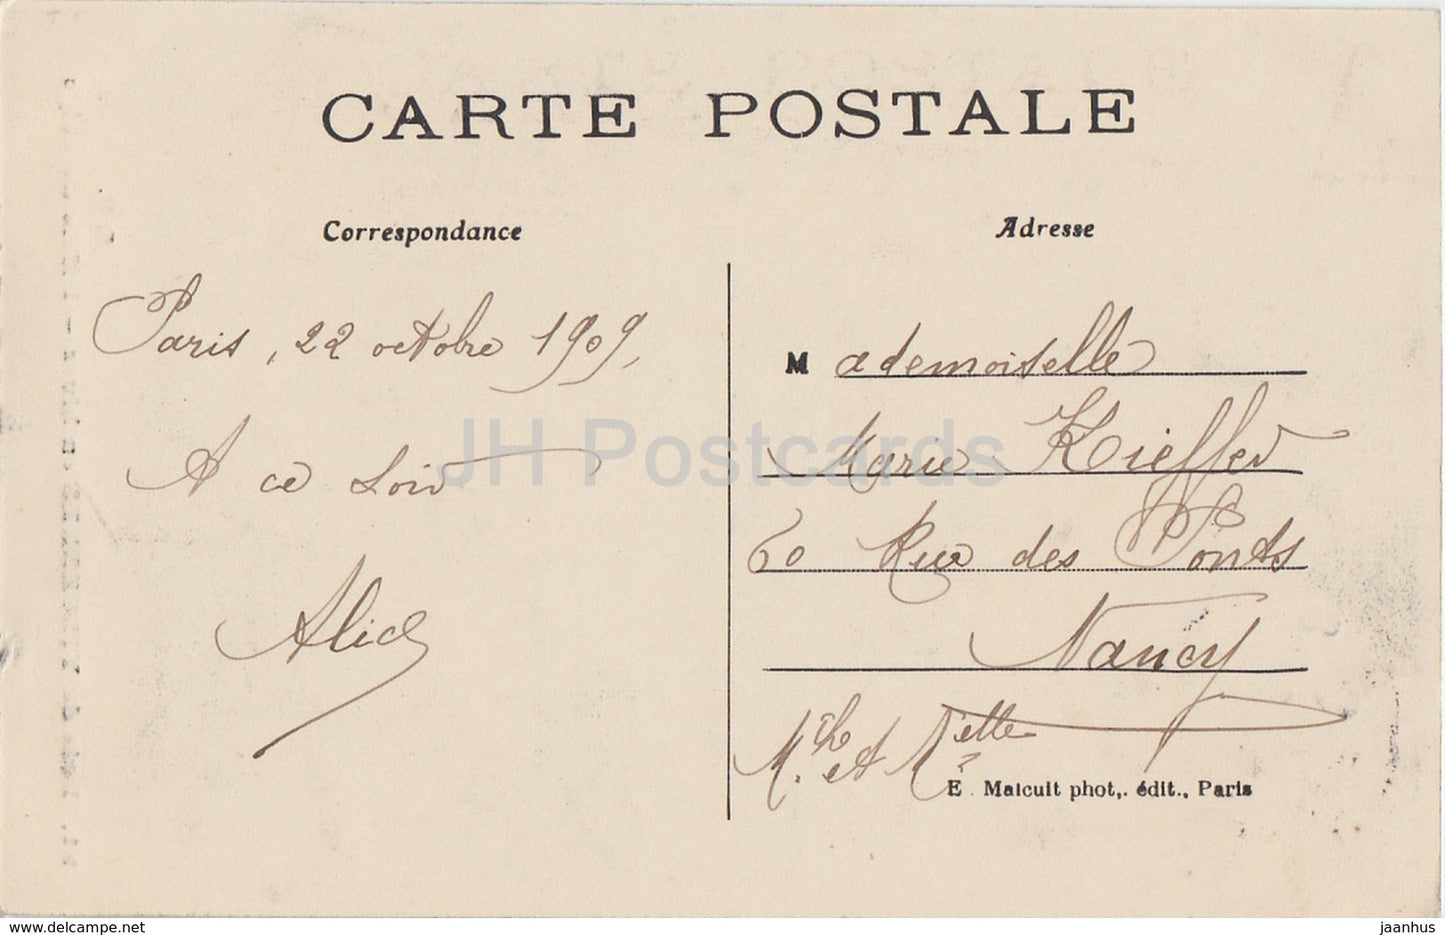 CARTE POSTALE
Correspondance
Paris, 22 octobre 1909,
A ce soir
Alice
Adresse
Mademoiselle
Marie Kieffer
60 Rue des Ponts
Nancy
Mthe et
E. Malcuit phot., édit., Paris
JH Postcards
www.delcampe.net
jaanhus